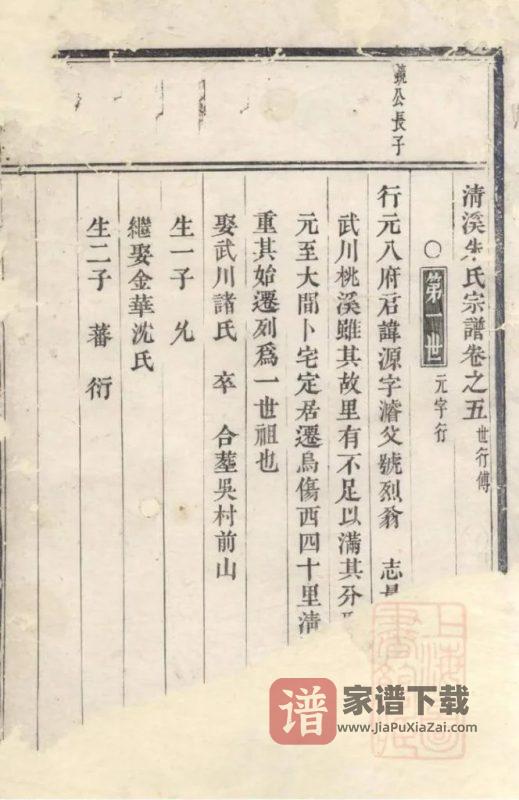 清溪朱氏宗譜卷之五 世行傳
〇第一世 元字行
義公長子
行元八府君諱源字濬父號烈翁 志
武川桃溪雖其故里有不足以滿其分
元至大間卜宅定居遷烏傷西四十里清
重其始遷列爲一世祖也
娶武川諸氏 卒 合塟吳村前山
生一子 允
繼娶金華沈氏
生二子 蕃 衍
上海圖書館藏
谱 家谱下载
www.JiaPuXiaZai.com